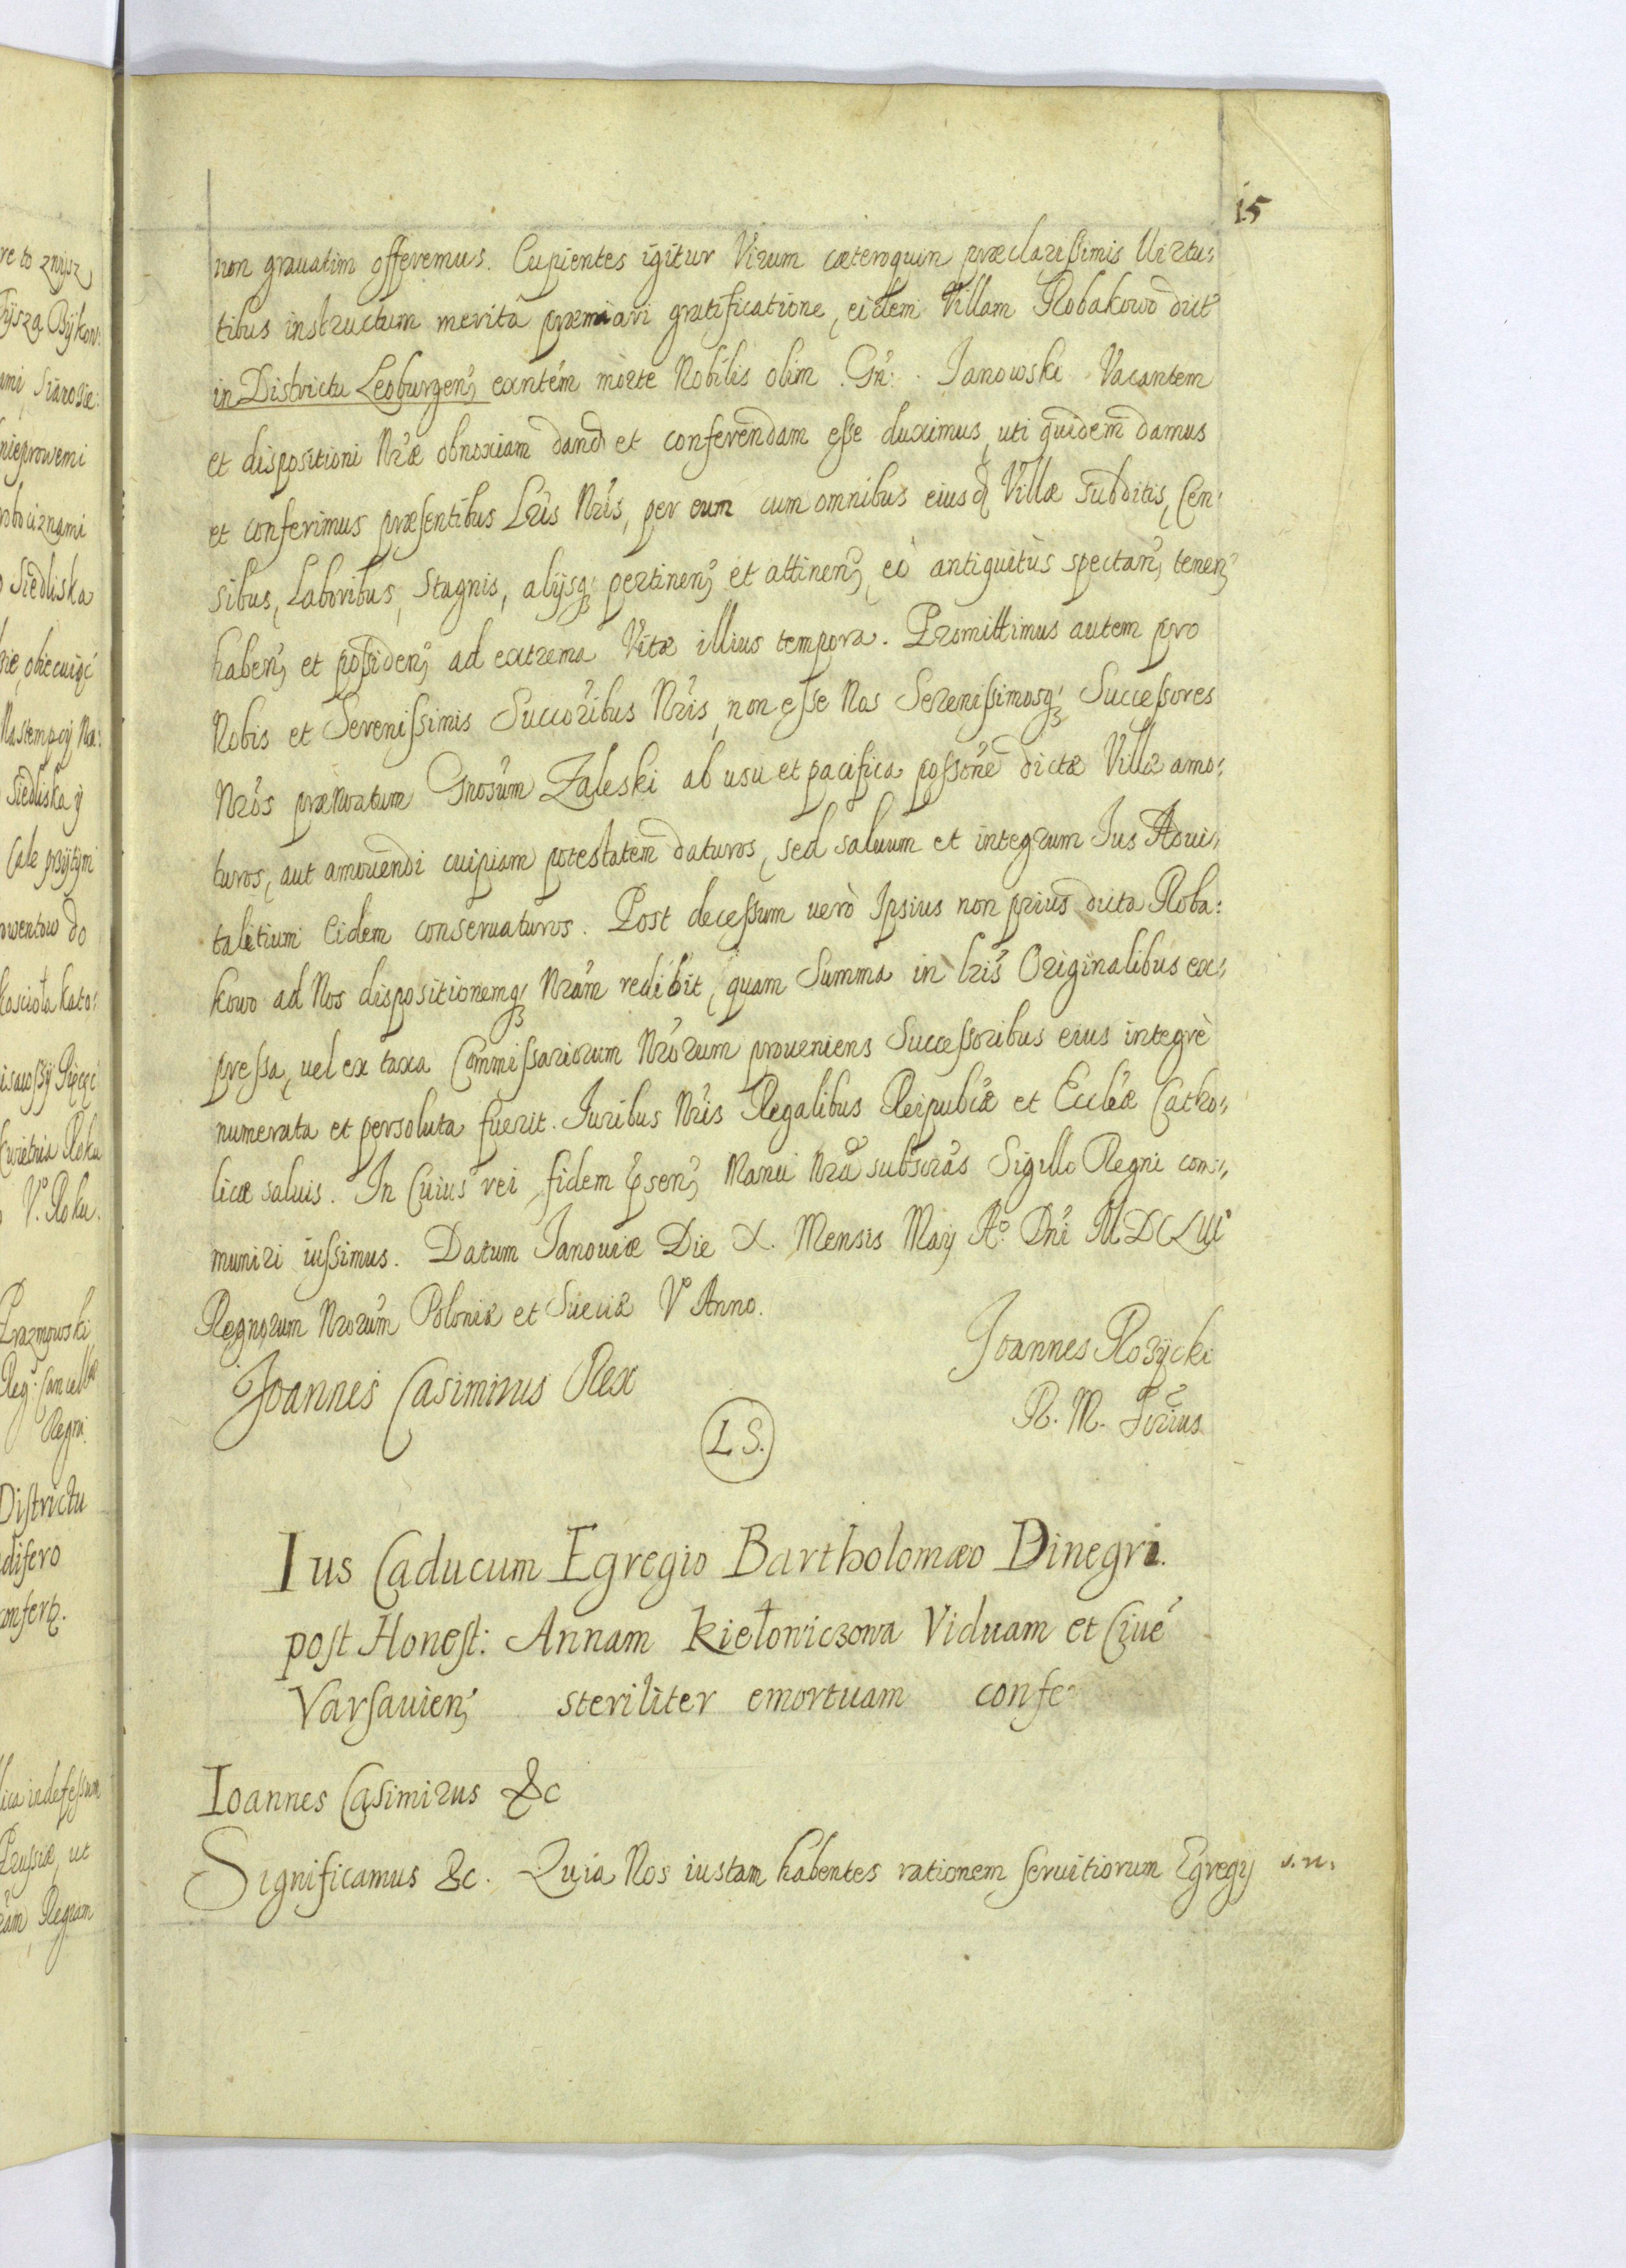 15
non grauatim offeremus. Cupientes igitur Virum cæteroquin præclarissimis Virtu:
tibus instructum meritâ præmiari gratificatione, eidem Villam Robakowo dict
in Districtu Leoburgen, exntem morte Nobilis olim Gn: Janowski Vacantem
et dispositioni Nræ obnoxiam dand et conferendam esse duximus, uti quidem damus
et conferimus præsentibus Lris Nris, per eum cum omnibus eiusd Villæ Subditis, Cen:
sibus, Laboribus, Stagnis, alijsq pertinen, et attinen, eò antiquitùs spectan, tenen,
haben, et possiden, ad extrema Vitæ illius tempora. Promittimus autem pro
Nobis et Serenissimis Succoribus Nris, non esse Nos Serenissimosq Successores
Nros prænoratum Gnosum Zaleski ab usu et pacifica possone dictæ Villæ amo:
turos, aut amouendi cuipiam potestatem daturos, sed saluum et integrum Ius Adui:
talitium Eidem conseruaturos. Post decessum verò Ipsius non prius dicta Roba:
kowo ad Nos dispositionemq Nram redibit, quam Summa in lris Originalibus ex:
pressa, uel ex taxa Commissariorum Nrorum proueniens Successoribus eius integrè
numerata et persoluta fuerit. Iuribus Nris Regalibus Reipublæ et Eccleæ Catho:
licæ saluis. In Cuius rei fidem psen, Manu Nra subscras Sigillo Regni com:
muniri iussimus. Datum Janouiæ Die X. Mensis Maij Ao Dni MDCLIII
Regnorum Nrorum Poloniæ et Sueciæ Vo Anno.
Joannes Casimirus Rex
Joannes Rożycki
R. M. Srius
L S.
Ius Caducum Egregio Bartholomæo Dinegri.
post Honest: Annam Kiełoniczowa Viduam et Ciue
Varsauien, steriliter emortuam confe
Ioannes Casimirus &c
Significamus &c. Quia Nos iustam habentes rationem seruitiorum Egregij s. n.